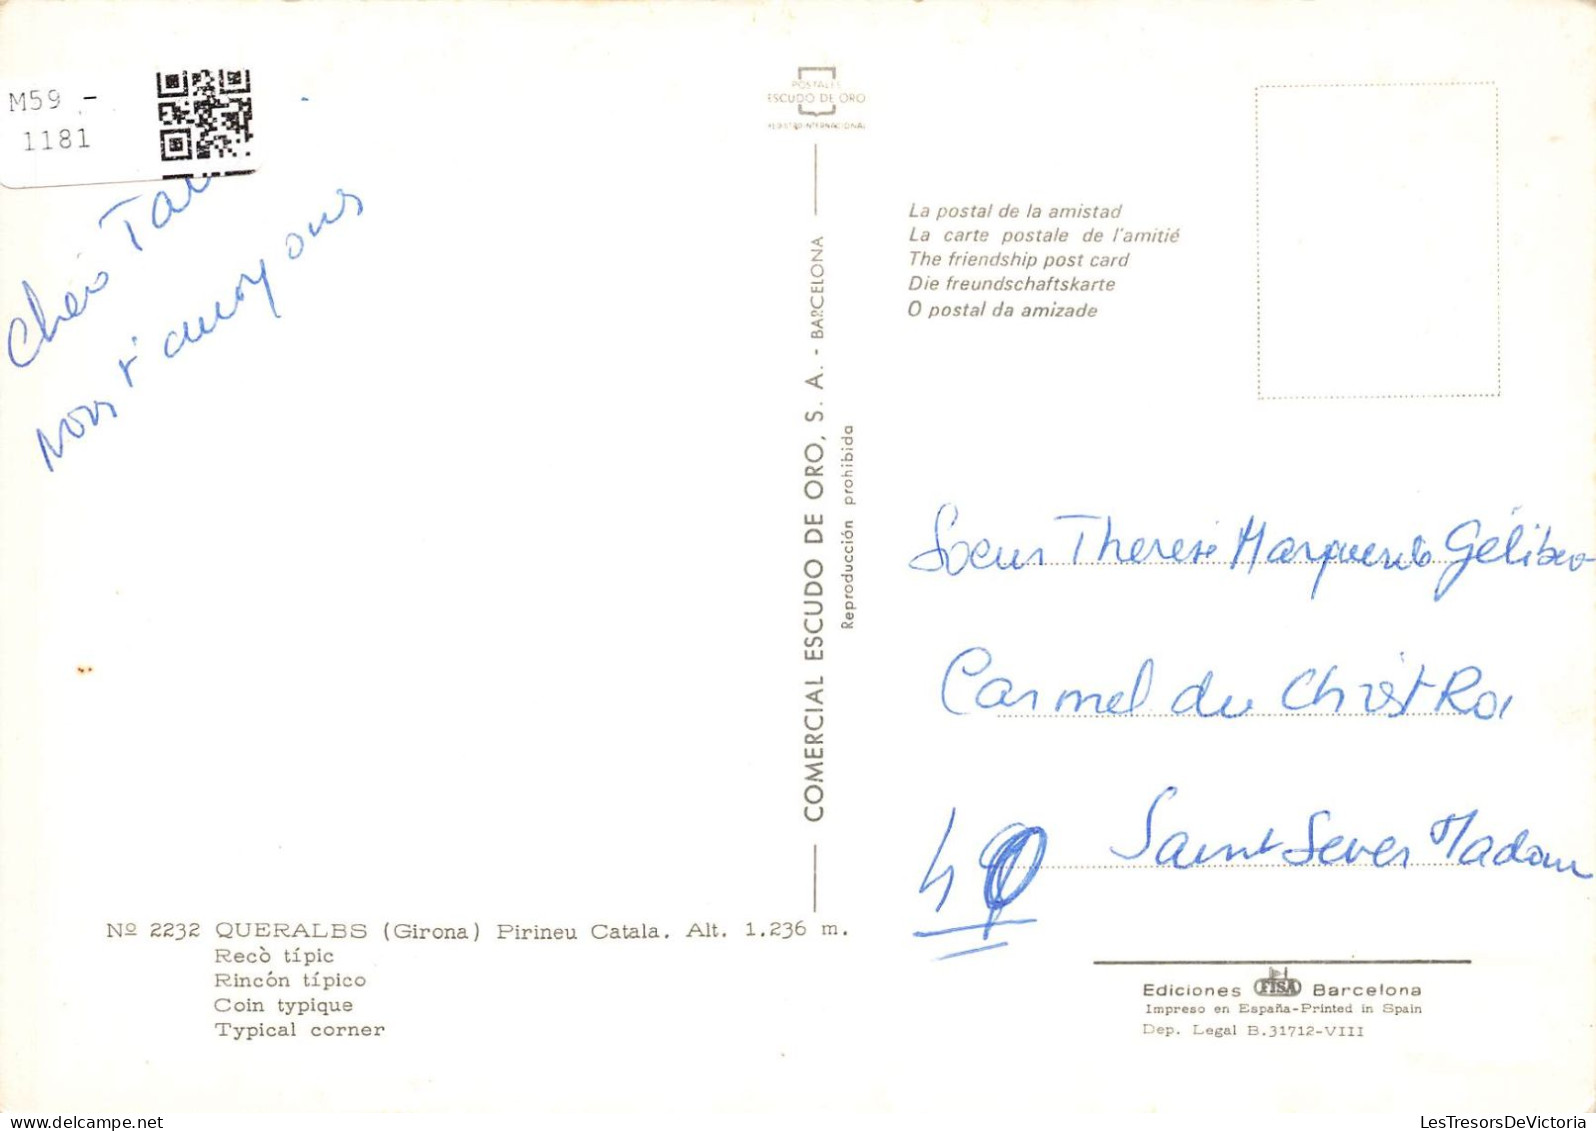 M59 -
1181
Nous t'envoyons
POSTALES
ESCUDO DE ORO
COMERCIAL ESCUDO DE ORO, S. A. - BARCELONA
Reproducción prohibida
La postal de la amistad
La carte postale de l'amitié
The friendship post card
Die freundschaftskarte
O postal da amizade
Soeur Therese Marguerite
Carmel du Christ Roi
40 Saint Sever
Nº 2232 QUERALBS (Girona) Pirineu Catala. Alt. 1.236 m.
Recò típic
Rincón típico
Coin typique
Typical corner
Ediciones FISA Barcelona
Impreso en España-Printed in Spain
Dep. Legal B.31712-VIII
LesTresorsDeVictoria